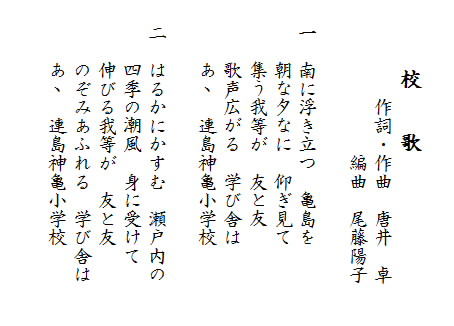 校　歌
作詞・作曲　唐井　卓
編曲　尾藤陽子
一　南に浮き立つ　亀島を
朝な夕なに　仰ぎ見て
集う我等が　友と友
歌声広がる　学び舎は
あゝ　連島神亀小学校
二　はるかにかすむ　瀬戸内の
四季の潮風　身に受けて
伸びる我等が　友と友
のぞみあふれる　学び舎は
あゝ　連島神亀小学校